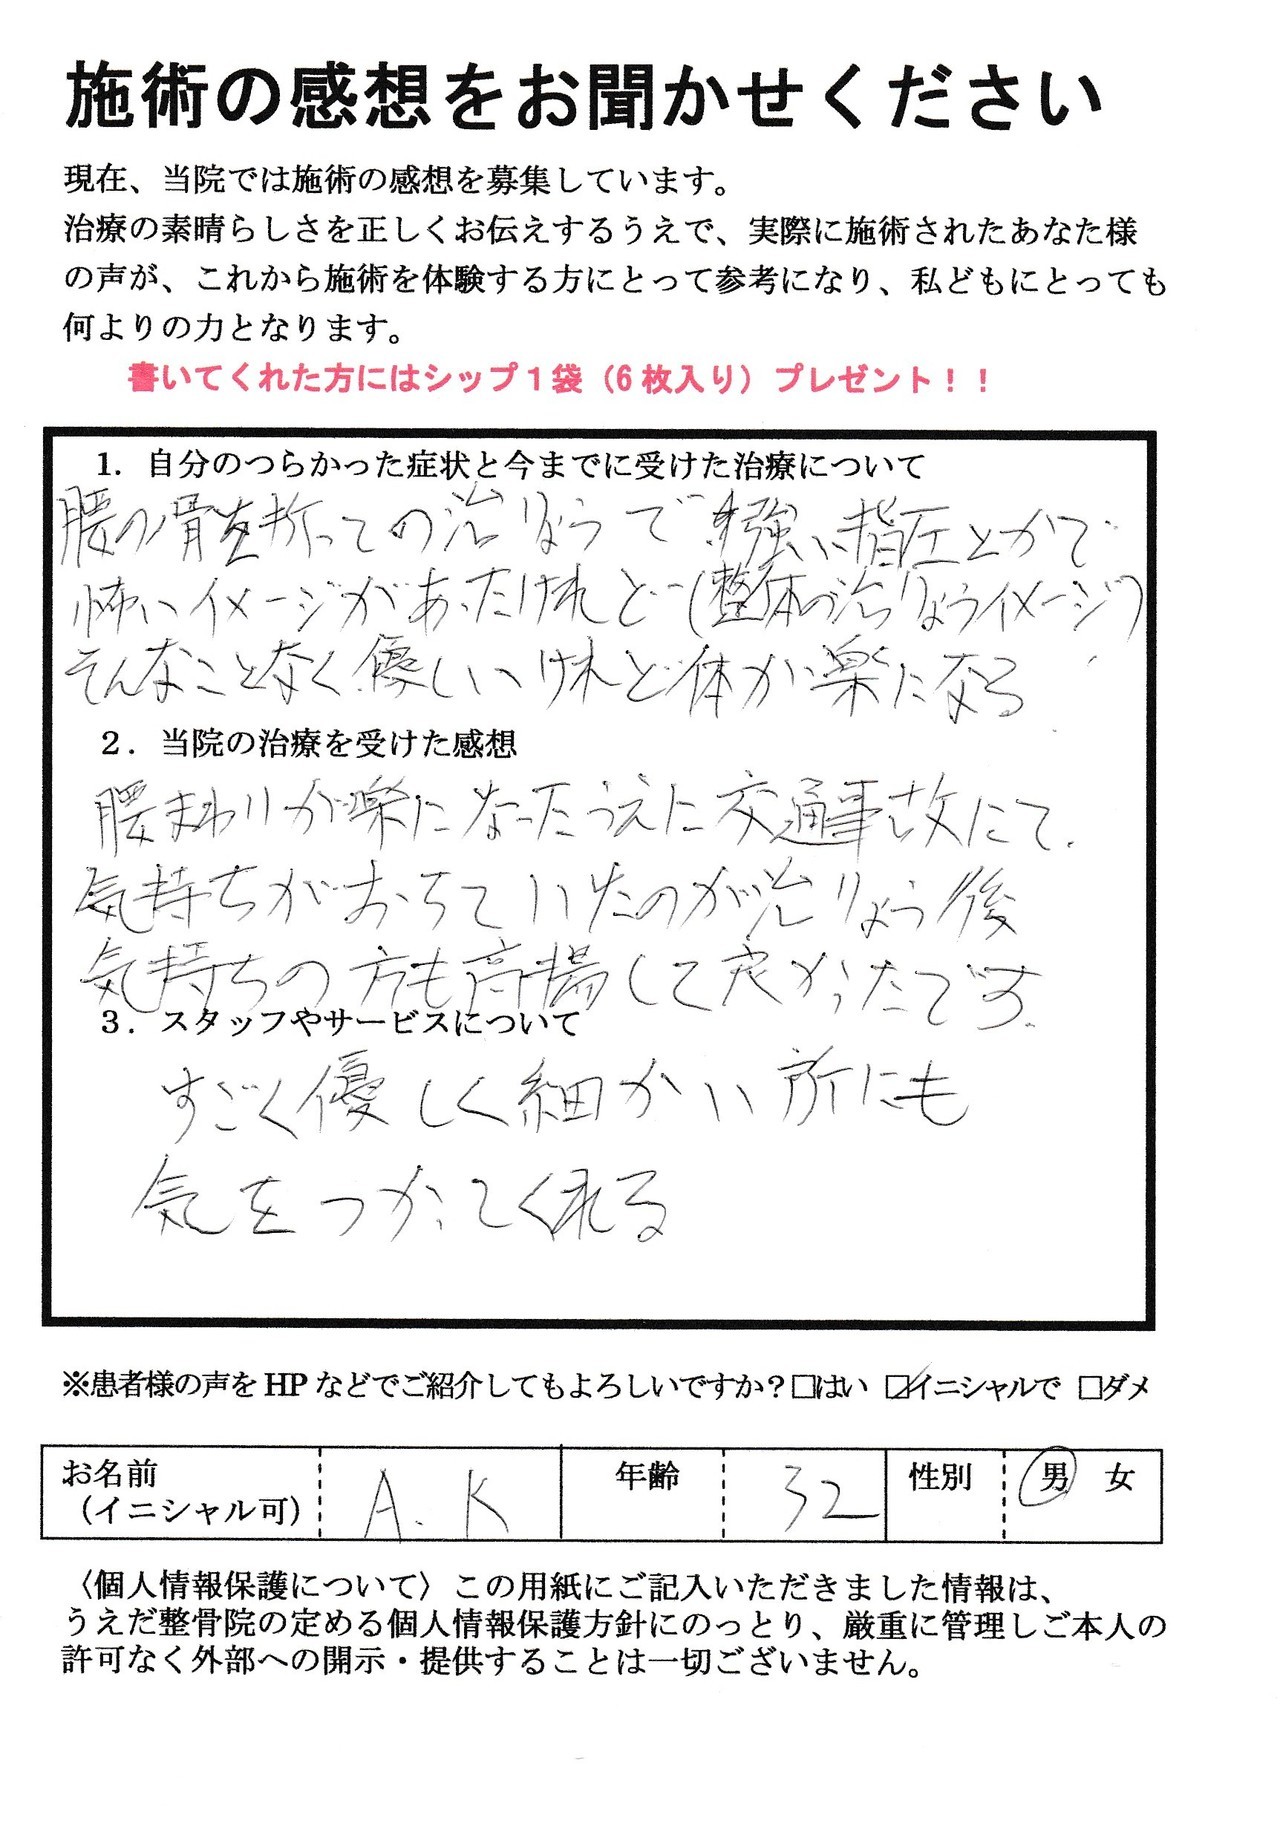 施術の感想をお聞かせください
現在、当院では施術の感想を募集しています。
治療の素晴らしさを正しくお伝えするうえで、実際に施術されたあなた様
の声が、これから施術を体験する方にとって参考になり、私どもにとっても
何よりの力となります。
書いてくれた方にはシップ１袋（6 枚入り）プレゼント！！
1. 自分のつらかった症状と今までに受けた治療について
腰の骨を折っての治りょうで 強い指圧とかで
怖いイメージがあったけれど (整体の治りょうイメージ)
そんなことなく優しいけれど体が楽になる
２．当院の治療を受けた感想
腰まわりが楽になったうえに交通事故にて
気持ちがおちていたのが治りょう後
気持ちの方も高揚して良かったです.
３．スタッフやサービスについて
すごく優しく細かい所にも
気をつかってくれる
※患者様の声を HP などでご紹介してもよろしいですか？□はい ☑イニシャルで □ダメ
お名前 A. K 年齢 32 性別 男 女
（イニシャル可）
〈個人情報保護について〉この用紙にご記入いただきました情報は、
うえだ整骨院の定める個人情報保護方針にのっとり、厳重に管理しご本人の
許可なく外部への開示・提供することは一切ございません。